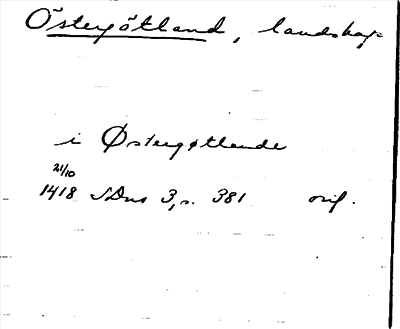 Östergötland, landskap
i Østergøtlande
21/10
1418 SDns 3, s. 381 orig.